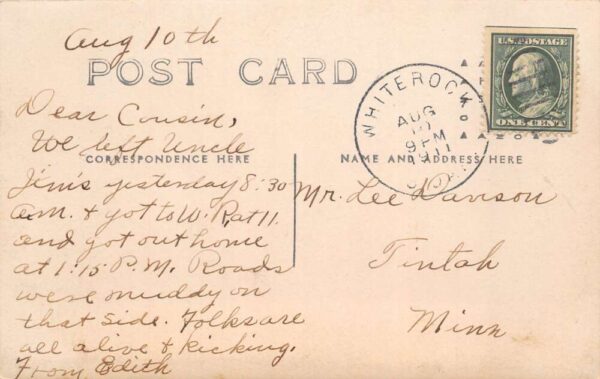 Aug 10th
POST CARD
U.S. POSTAGE
ONE CENT
WHITEROCK
AUG
10
9 PM
1911
Dear Cousin,
We left Uncle
CORRESPONDENCE HERE
Jim's yesterday 8:30
a.m. & got to W.R. at 11.
and got out home
at 1:15 P.M. Roads
were muddy on
that side. Folks are
all alive & kicking.
From Edith
NAME AND ADDRESS HERE
Mr. Lee Davison
Tintah
Minn